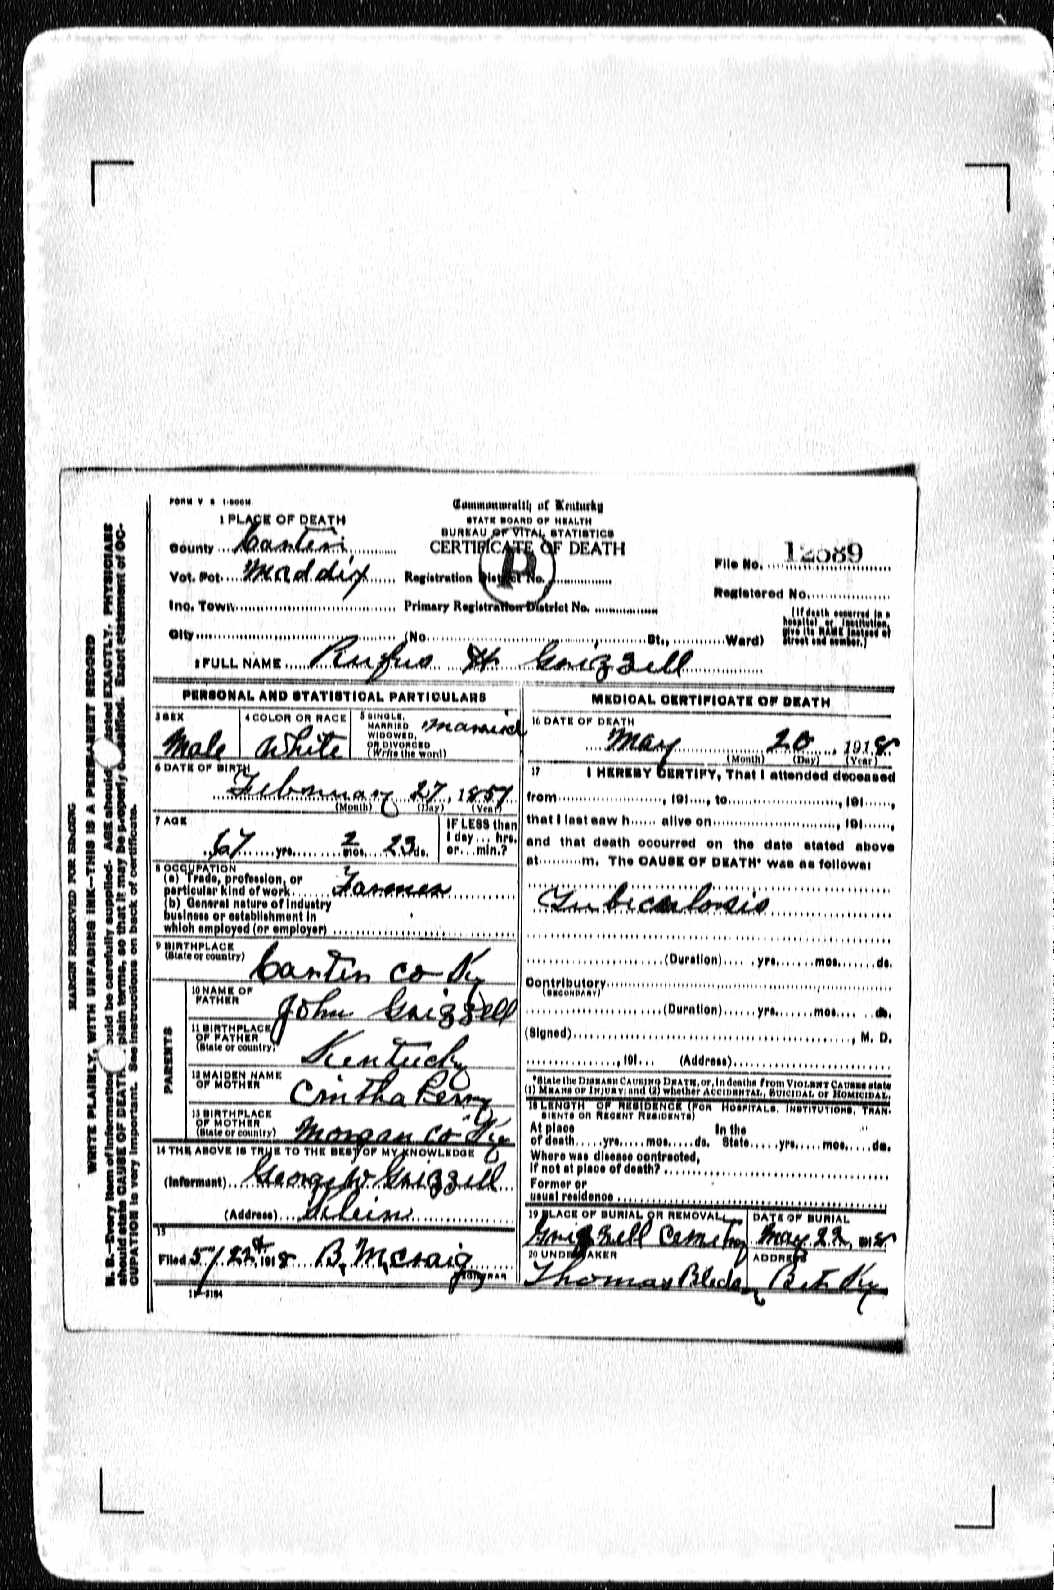 FORM V S 1-500M
Commonwealth of Kentucky
STATE BOARD OF HEALTH
BUREAU OF VITAL STATISTICS
CERTIFICATE OF DEATH
1 PLACE OF DEATH
County Carter
Vot. Pct. Maddix Registration District No.
File No. 12589
Registered No.
Inc. Town Primary Registration District No.
(If death occurred in a hospital or institution, give its NAME instead of street and number.)
City (No. St., Ward)
2 FULL NAME Rufus H Grizzell
PERSONAL AND STATISTICAL PARTICULARS
3 SEX
Male
4 COLOR OR RACE
White
5 SINGLE, MARRIED WIDOWED, OR DIVORCED (Write the word)
Married
6 DATE OF BIRTH
February 27, 1851
(Month) (Day) (Year)
7 AGE
67 yrs. 2 mos. 23 ds.
IF LESS than 1 day ... hrs. or ... min.?
8 OCCUPATION
(a) Trade, profession, or particular kind of work Farmer
(b) General nature of industry business or establishment in which employed (or employer)
9 BIRTHPLACE
(State or country)
Carter Co Ky
PARENTS
10 NAME OF FATHER
John Grizzell
11 BIRTHPLACE OF FATHER
(State or country)
Kentucky
12 MAIDEN NAME OF MOTHER
Cintha Perry
13 BIRTHPLACE OF MOTHER
(State or country)
Morgan Co Ky
14 THE ABOVE IS TRUE TO THE BEST OF MY KNOWLEDGE
(Informant) George W Grizzell
(Address)
15
Filed 5/22d 1918 B. McCraig
REGISTRAR
11-3184
MEDICAL CERTIFICATE OF DEATH
16 DATE OF DEATH
May 20, 1918
(Month) (Day) (Year)
17 I HEREBY CERTIFY, That I attended deceased
from , 191 , to , 191 ,
that I last saw h alive on , 191 ,
and that death occurred on the date stated above
at m. The CAUSE OF DEATH* was as follows:
Tubeculosis
(Duration) yrs. mos. ds.
Contributory
(SECONDARY)
(Duration) yrs. mos. ds.
(Signed) , M. D.
, 191 (Address)
*State the DISEASE CAUSING DEATH, or, in deaths from VIOLENT CAUSES state
(1) MEANS OF INJURY; and (2) whether ACCIDENTAL, SUICIDAL or HOMICIDAL.
18 LENGTH OF RESIDENCE (FOR HOSPITALS, INSTITUTIONS, TRANSIENTS OR RECENT RESIDENTS)
At place of death yrs. mos. ds. In the State yrs. mos. ds.
Where was disease contracted,
if not at place of death?
Former or
usual residence
19 PLACE OF BURIAL OR REMOVAL
Grizzell Cemetry
DATE OF BURIAL
May 22, 1918
20 UNDERTAKER
Thomas
ADDRESS
Ky
MARGIN RESERVED FOR BINDING
WRITE PLAINLY, WITH UNFADING INK—THIS IS A PERMANENT RECORD
N. B.—Every item of information should be carefully supplied. AGE should be stated EXACTLY. PHYSICIANS
should state CAUSE OF DEATH in plain terms, so that it may be properly classified. Exact statement of OC-
CUPATION is very important. See instructions on back of certificate.